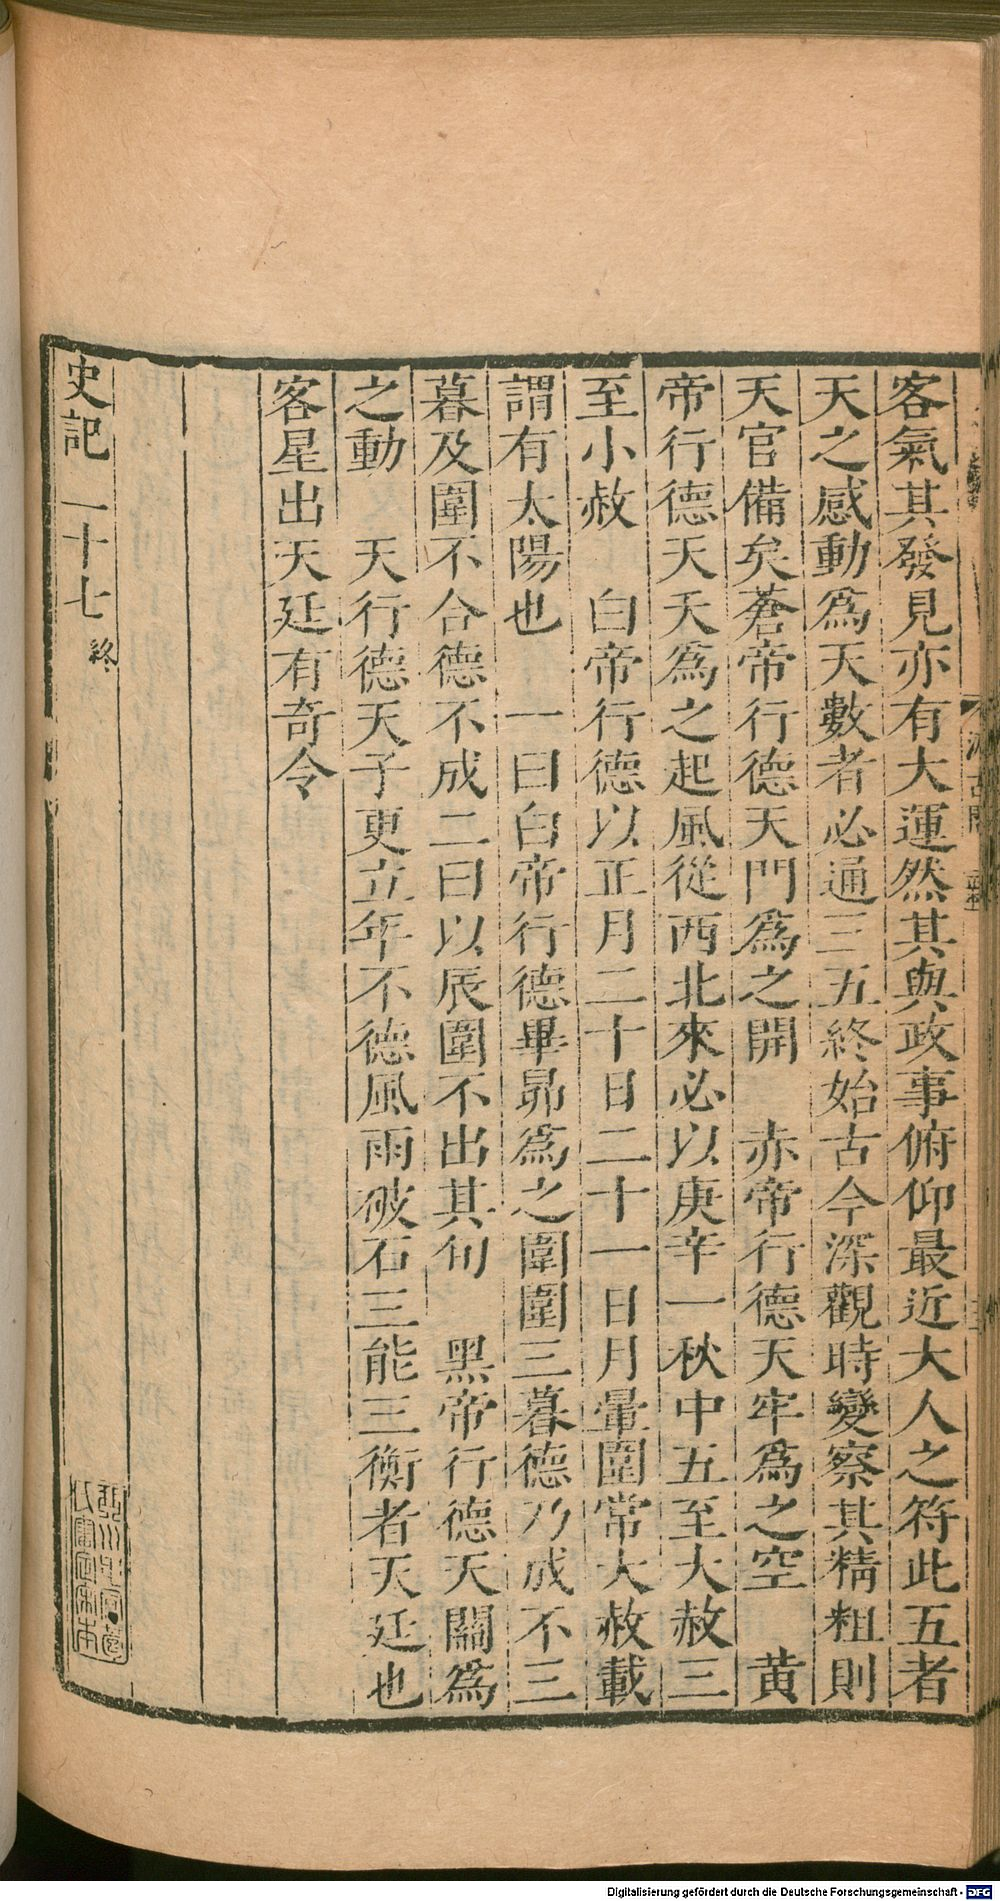 客氣其發見亦有大運然其與政事俯仰最近大人之符此五者
天之感動爲天數者必通三五終始古今深觀時變察其精粗則
天官備矣蒼帝行德天門爲之開　赤帝行德天牢爲之空　黃
帝行德天夭爲之起風從西北來必以庚辛一秋中五至大赦三
至小赦　白帝行德以正月二十日二十一日月暈圍常大赦載
謂有太陽也　一曰白帝行德畢昴爲之圍圍三暮德乃成不三
暮及圍不合德不成二曰以辰圍不出其旬　黑帝行德天關爲
之動　天行德天子更立年不德風雨破石三能三衡者天廷也
客星出天廷有奇令
史記二十七終
Digitalisierung gefördert durch die Deutsche Forschungsgemeinschaft - DFG